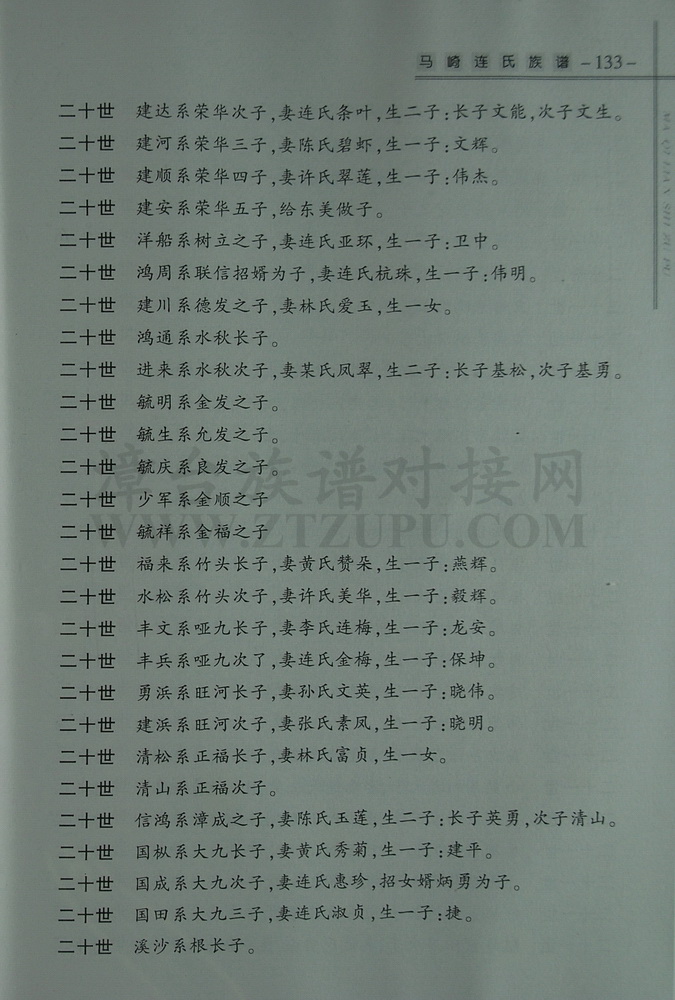 马崎连氏族谱 -133-
二十世 建达系荣华次子,妻连氏条叶,生二子:长子文能,次子文生。
二十世 建河系荣华三子,妻陈氏碧虾,生一子:文辉。
二十世 建顺系荣华四子,妻许氏翠莲,生一子:伟杰。
二十世 建安系荣华五子,给东美做子。
二十世 洋船系树立之子,妻连氏亚环,生一子:卫中。
二十世 鸿周系联信招婿为子,妻连氏杭珠,生一子:伟明。
二十世 建川系德发之子,妻林氏爱玉,生一女。
二十世 鸿通系水秋长子。
二十世 进来系水秋次子,妻某氏凤翠,生二子:长子基松,次子基勇。
二十世 毓明系金发之子。
二十世 毓生系允发之子。
二十世 毓庆系良发之子。
二十世 少军系金顺之子
二十世 毓祥系金福之子
二十世 福来系竹头长子,妻黄氏赞朵,生一子:燕辉。
二十世 水松系竹头次子,妻许氏美华,生一子:毅辉。
二十世 丰文系哑九长子,妻李氏连梅,生一子:龙安。
二十世 丰兵系哑九次了,妻连氏金梅,生一子:保坤。
二十世 勇浜系旺河长子,妻孙氏文英,生一子:晓伟。
二十世 建浜系旺河次子,妻张氏素凤,生一子:晓明。
二十世 清松系正福长子,妻林氏富贞,生一女。
二十世 清山系正福次子。
二十世 信鸿系漳成之子,妻陈氏玉莲,生二子:长子英勇,次子清山。
二十世 国枞系大九长子,妻黄氏秀菊,生一子:建平。
二十世 国成系大九次子,妻连氏惠珍,招女婿炳勇为子。
二十世 国田系大九三子,妻连氏淑贞,生一子:捷。
二十世 溪沙系根长子。
MA QI LIAN SHI ZU PU
漳台族谱对接网
WWW.ZTZUPU.COM